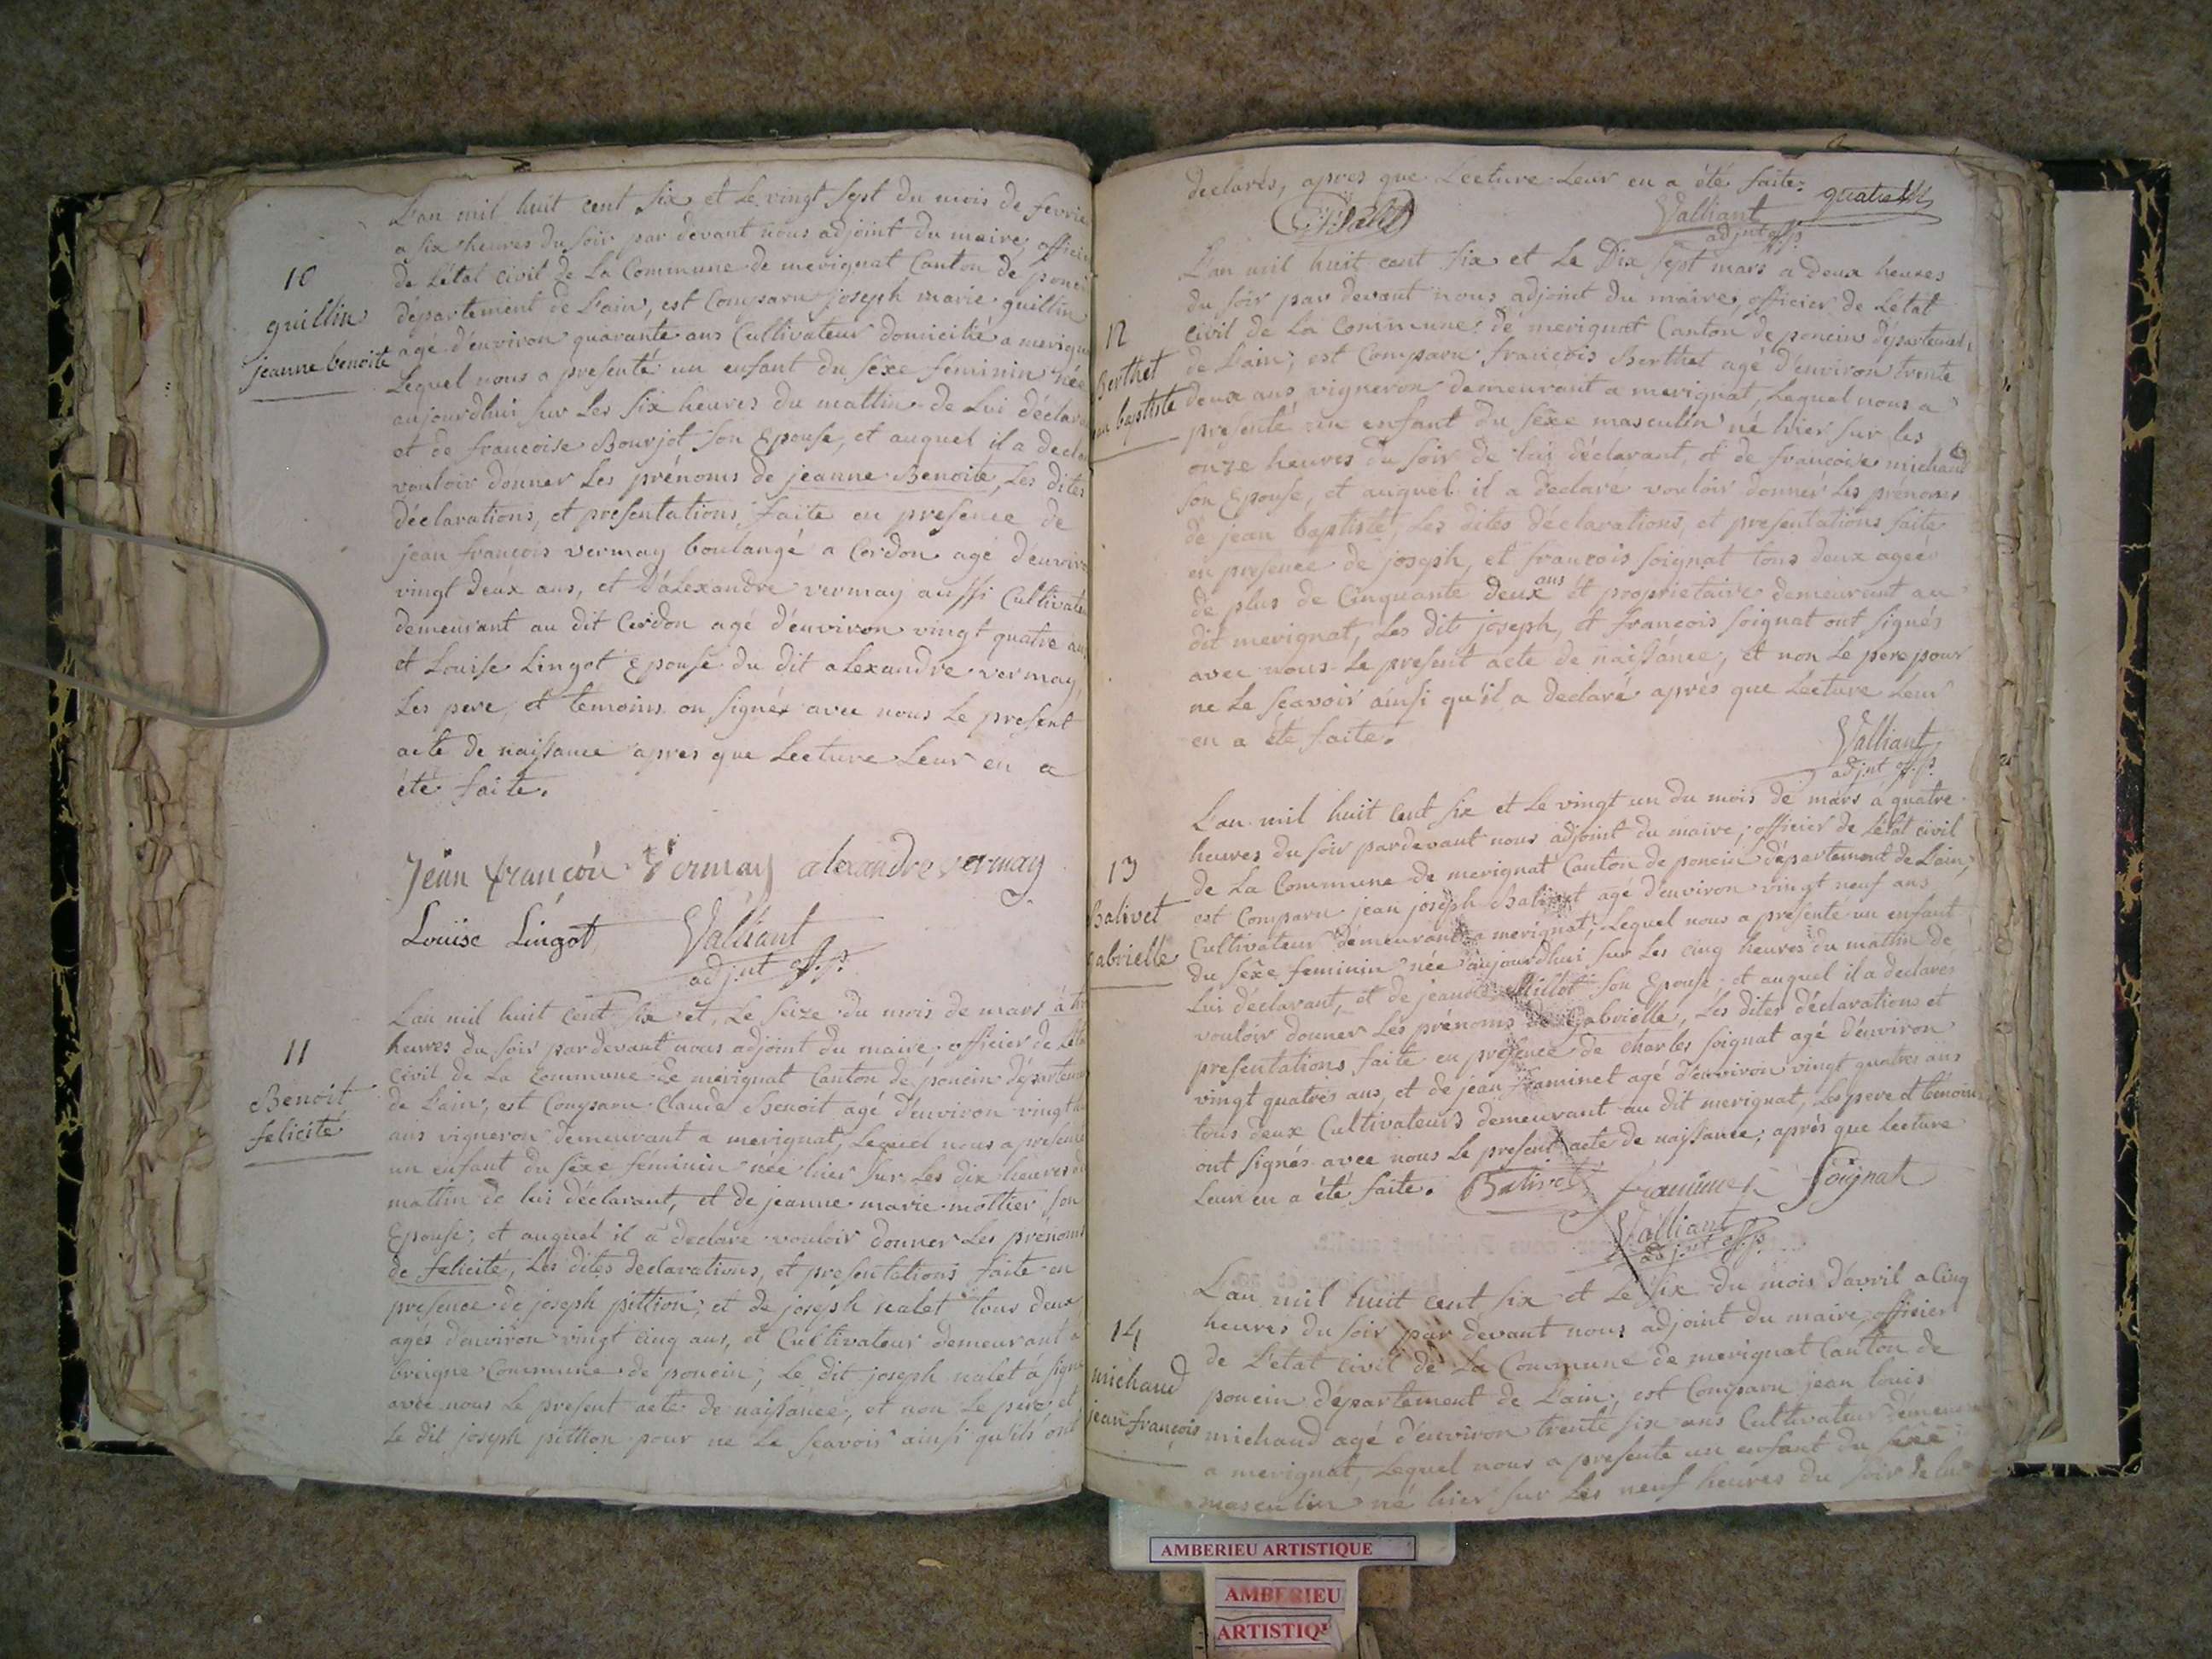 10
guillin
jeanne benoite
L'an mil huit cent six et Le vingt sept du mois de fevrie
a six heures du soir par devant nous adjoint du maire, officie
de L'état civil de La Commune de merignat Canton de ponci
département de L'ain, est Comparu joseph marie guillin
agé d'environ quarante ans Cultivateur domicilié a merigna
Lequel nous a présenté un enfant du séxe féminin née
aujourdhui sur Les six heures du mattin de Lui déclara
et de francoise Bourjot son Epouse, et auquel il a decla
vouloir donner Les prénoms de jeanne Benoite, Les dites
déclarations, et presentations, faite en presence de
jean françois vermay boulangé a Cerdon agé d'enviro
vingt deux ans, et d'alexandre vermay aussi Cultivate
demeurant au dit Cerdon agé d'environ vingt quatre an
et Louise Lingot Epouse du dit alexandre vermay,
Les pere, et temoins on signés avec nous Le present
acte de naissance apres que Lecture Leur en a
été faite.
Jean françois Vermay alexandre vermay
Louise Lingot Valliant
adjnt off.p.
11
Benoit
felicité
L'an mil huit cent six et, Le seize du mois de mars à tr
heures du soir pardevant nous adjoint du maire, officier de L'éta
Civil de La Commune de merignat Canton de poncin départeme
de L'ain, est Comparu Claude Benoit agé d'environ vingt
ans vigneron demeurant a merignat, Lequel nous a presenté
un enfant du séxe féminin née hier sur Les dix heures du
mattin de lui déclarant, et de jeanne marie mottier son
Epouse; et auquel il a declaré vouloir donner Les prénoms
de felicité, Les dites declarations, et presentations faite en
presence de joseph pittion; et de joseph nalet tous deux
agés d'environ vingt cinq ans, et Cultivateur demeurant a
breigne Commune de poncin; Le dit joseph nalet à signé
avec nous Le present acte de naissance, et non Le pere et
Le dit joseph pittion pour ne Le sçavoir ainsi qu'ils ont
declarés, apres que Lecture Leur en a été faite.
quatre
Valliant
adjnt off.p.
12
Berthet
baptiste
L'an mil huit cent six et Le Dix sept mars a deux heures
du soir par devant nous adjoint du maire, officier de L'état
Civil de La Commune de merignat Canton de poncin département
de L'ain, est Comparu francois Berthet agé d'environ trente
deux ans vigneron demeurant a merignat, Lequel nous a
presenté un enfant du séxe masculin né hier sur Les
onze heures du soir de lui déclarant et de francoise michaud
son Epouse, et auquel il a declaré vouloir donner Les prénoms
de jean baptiste, Les dites déclarations, et presentations faite
en presence de joseph, et francois soignat tous deux agés
de plus de Cinquante deux ans et propriétaire demeurant au
dit merignat, Les dit joseph, et francois soignat ont signés
avec nous Le present acte de naissance, et non Le pere pour
ne Le sçavoir ainsi qu'il a declaré après que Lecture Leur
en a été faite.
Valliant
adjnt off.p.
13
Balivet
gabrielle
L'an mil huit cent six et Le vingt un du mois de mars a quatre
heures du soir pardevant nous adjoint du maire, officier de L'état civil
de La Commune de merignat Canton de poncin département de L'ain,
est Comparu jean joseph Balivet agé d'environ vingt neuf ans
Cultivateur demeurant a merignat, Lequel nous a présenté un enfant
du séxe feminin née aujourdhui sur Les cinq heures du mattin de
Lui déclarant, et de jeanne Millot son Epouse; et auquel il a declarer
vouloir donner Les prénoms de Gabrielle, Les dites déclarations et
presentations faite en présence de charles soignat agé d'environ
vingt quatres ans, et de jean framinet agé d'environ vingt quatres ans
tous deux Cultivateurs demeurant au dit merignat, Les pere et temoins
ont signés avec nous Le present acte de naissance, aprés que Lecture
Leur en a été faite. Balivet framinet Soignat
Valliant
adjnt off.p.
14
michaud
jean françois
L'an mil huit cent six et Le six du mois d'avril a Cinq
heures du soir par devant nous adjoint du maire, officier
de L'etat civil de La Commune de merignat Canton de
poncin département de L'ain, est Comparu jean Louis
michaud agé d'environ trente six ans Cultivateur demeurant
a merignat, Lequel nous a presenté un enfant du séxe
masculin né hier sur Les neuf heures du soir de lui
AMBERIEU ARTISTIQUE
AMBERIEU
ARTISTIQ